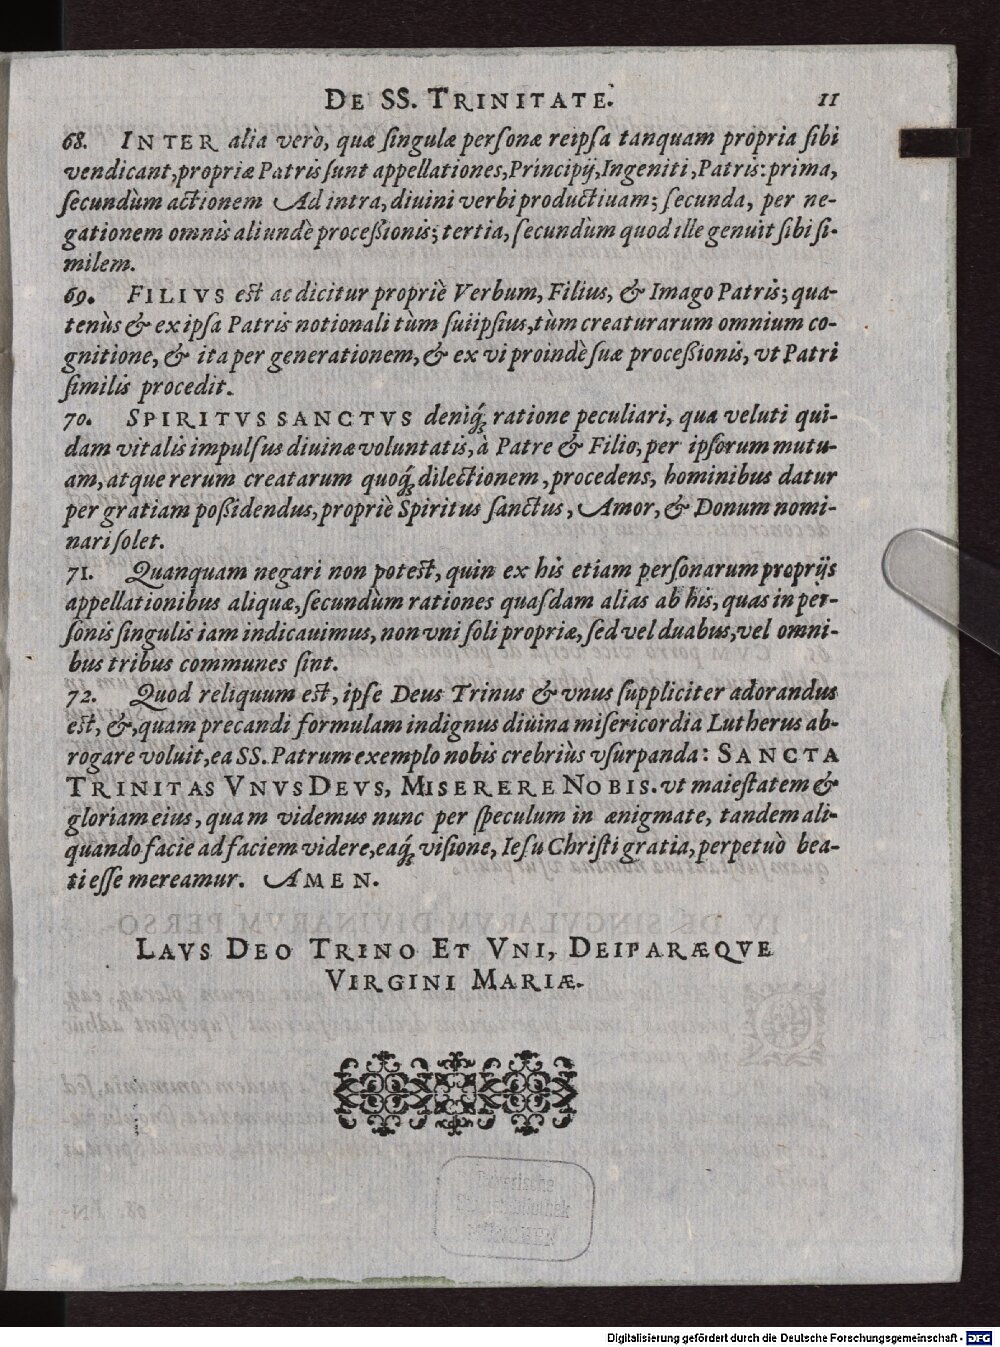 DE SS. TRINITATE. 11
68. INTER alia verò, quæ ſingulæ perſonæ reipſa tanquam propria ſibi
vendicant, propriæ Patris ſunt appellationes, Principij, Ingeniti, Patris: prima,
ſecundùm actionem Ad intra, diuini verbi productiuam; ſecunda, per ne-
gationem omnis aliundè proceßionis; tertia, ſecundùm quod ille genuit ſibi ſi-
milem.
69. FILIVS est ac dicitur propriè Verbum, Filius, & Imago Patris; qua-
tenùs & ex ipſa Patris notionali tùm ſuiipſius, tùm creaturarum omnium co-
gnitione, & ita per generationem, & ex vi proindè ſuæ proceßionis, vt Patri
ſimilis procedit.
70. SPIRITVS SANCTVS deniq́; ratione peculiari, qua veluti qui-
dam vitalis impulſus diuinæ voluntatis, à Patre & Filio, per ipſorum mutu-
am, atque rerum creatarum quoq́; dilectionem, procedens, hominibus datur
per gratiam poßidendus, propriè Spiritus ſanctus, Amor, & Donum nomi-
nari ſolet.
71. Quanquam negari non potest, quin ex his etiam perſonarum proprijs
appellationibus aliquæ, ſecundùm rationes quaſdam alias ab his, quas in per-
ſonis ſingulis iam indicauimus, non vni ſoli propriæ, ſed vel duabus, vel omni-
bus tribus communes ſint.
72. Quod reliquum est, ipſe Deus Trinus & vnus ſuppliciter adorandus
est, &, quam precandi formulam indignus diuina miſericordia Lutherus ab-
rogare voluit, ea SS. Patrum exemplo nobis crebriùs vſurpanda: SANCTA
TRINITAS VNVS DEVS, MISERERE NOBIS. vt maieſtatem &
gloriam eius, quam videmus nunc per ſpeculum in ænigmate, tandem ali-
quando facie ad faciem videre, eaq́; viſione, Ieſu Chriſti gratia, perpetuò bea-
ti eſſe mereamur. AMEN.
LAVS DEO TRINO ET VNI, DEIPARÆQVE
VIRGINI MARIÆ.
Bayerische
Staatsbibliothek
MÜNCHEN
Digitalisierung gefördert durch die Deutsche Forschungsgemeinschaft - DFG